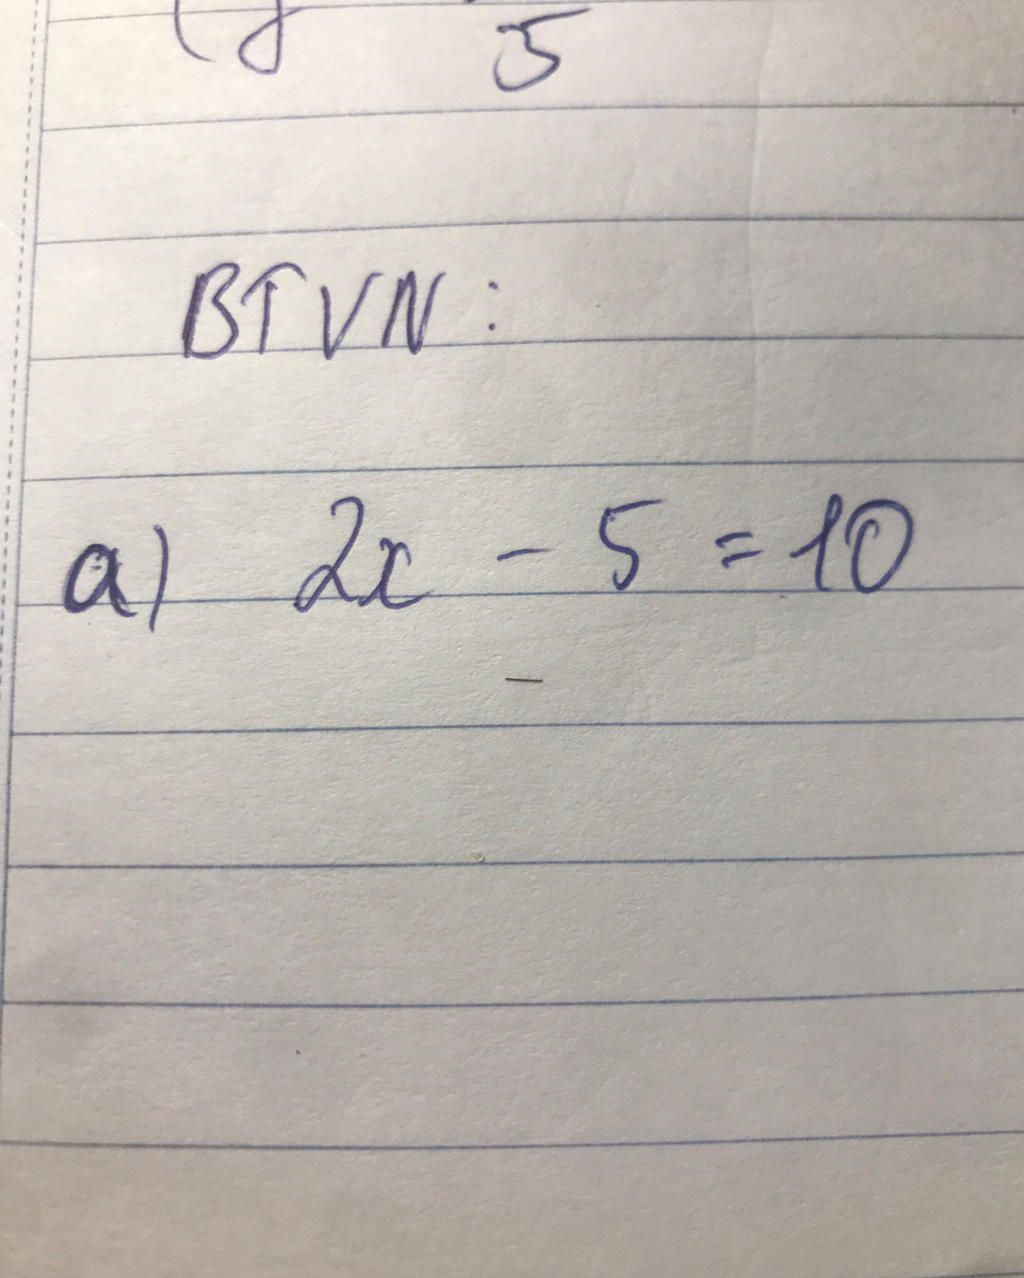 5
BTVN:
a) 2x - 5 = 10